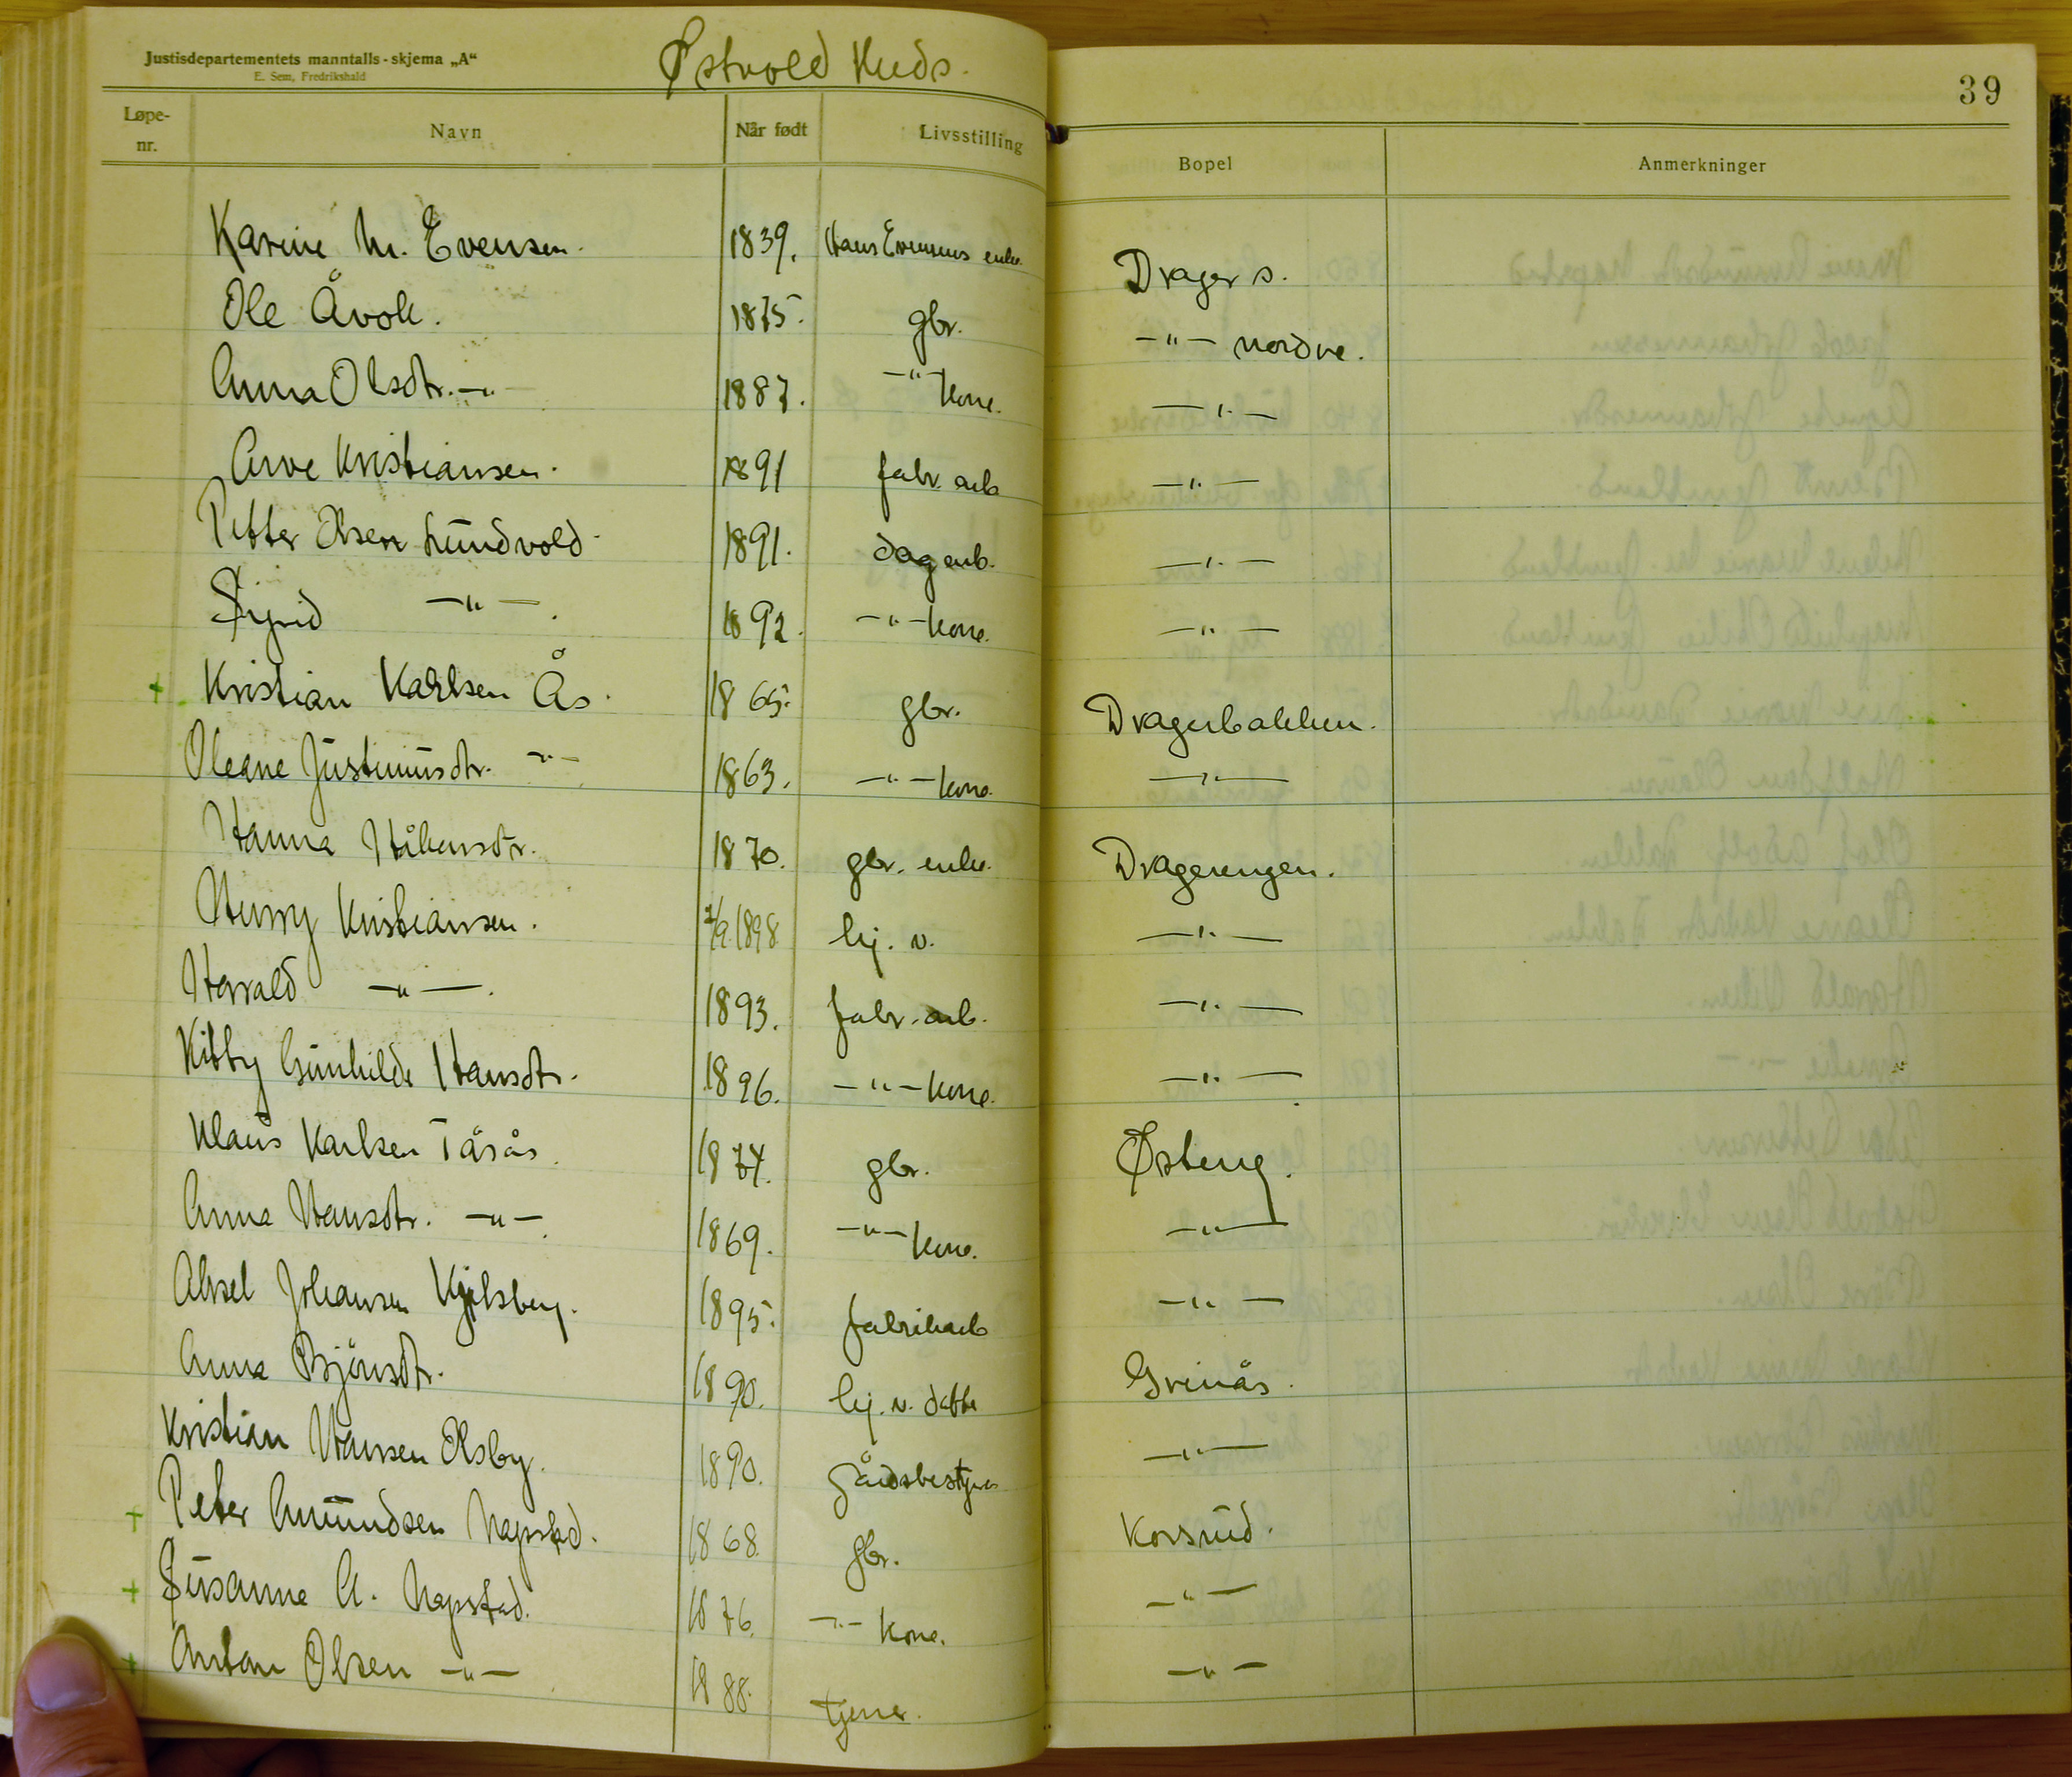 Justisdepartementets manntalls-skjema „A“
E. Sem, Fredrikshald
Østvold
39
Løpe-nr. Navn Når født Livsstilling Bopel Anmerkninger
Karine M. Evensen. 1839. Hans Evensens enke. Drager s.
Ole Åvoll. 1875. gbr. —„— nordre.
Anna Olsdtr. —„— 1887. —„— kone. —„—
Arve Kristiansen. 1891 fabr. arb —„—
Petter Olsen Lundvold. 1891. dagarb. —„—
Sigrid —„—. 1892. —„— kone. —„—
+ Kristian Karlsen Ås. 1865. gbr. Dragerbakken.
Oleane Justinusdtr. —„— 1863. —„— kone. —„—
Hanna Håkensdtr. 1870. gbr. enke. Dragerengen.
Henry Kristiansen. 1898 hj. v. —„—
Harald —„—. 1893. fabr. arb. —„—
Kitty Gunhilde Hansdtr. 1896. —„— kone. —„—
Klaus Karlsen Tåsås. 1874. gbr. Østeng.
Anna Hansdtr. —„—. 1869. —„— kone. —„—
Aksel Johansen Kjelsberg. 1895. fabrikarb —„—
Anna Bjørnsdtr. 1890. hj. v. datter Grinås.
Kristian Hansen Elsby. 1890. gårdsbestyrer —„—
+ Peter Amundsen Napstad. 1868. gbr. Korsrud.
+ Susanne A. Napstad. 1876. —„— kone. —„—
+ Anton Olsen —„— 1888. tjener. —„—